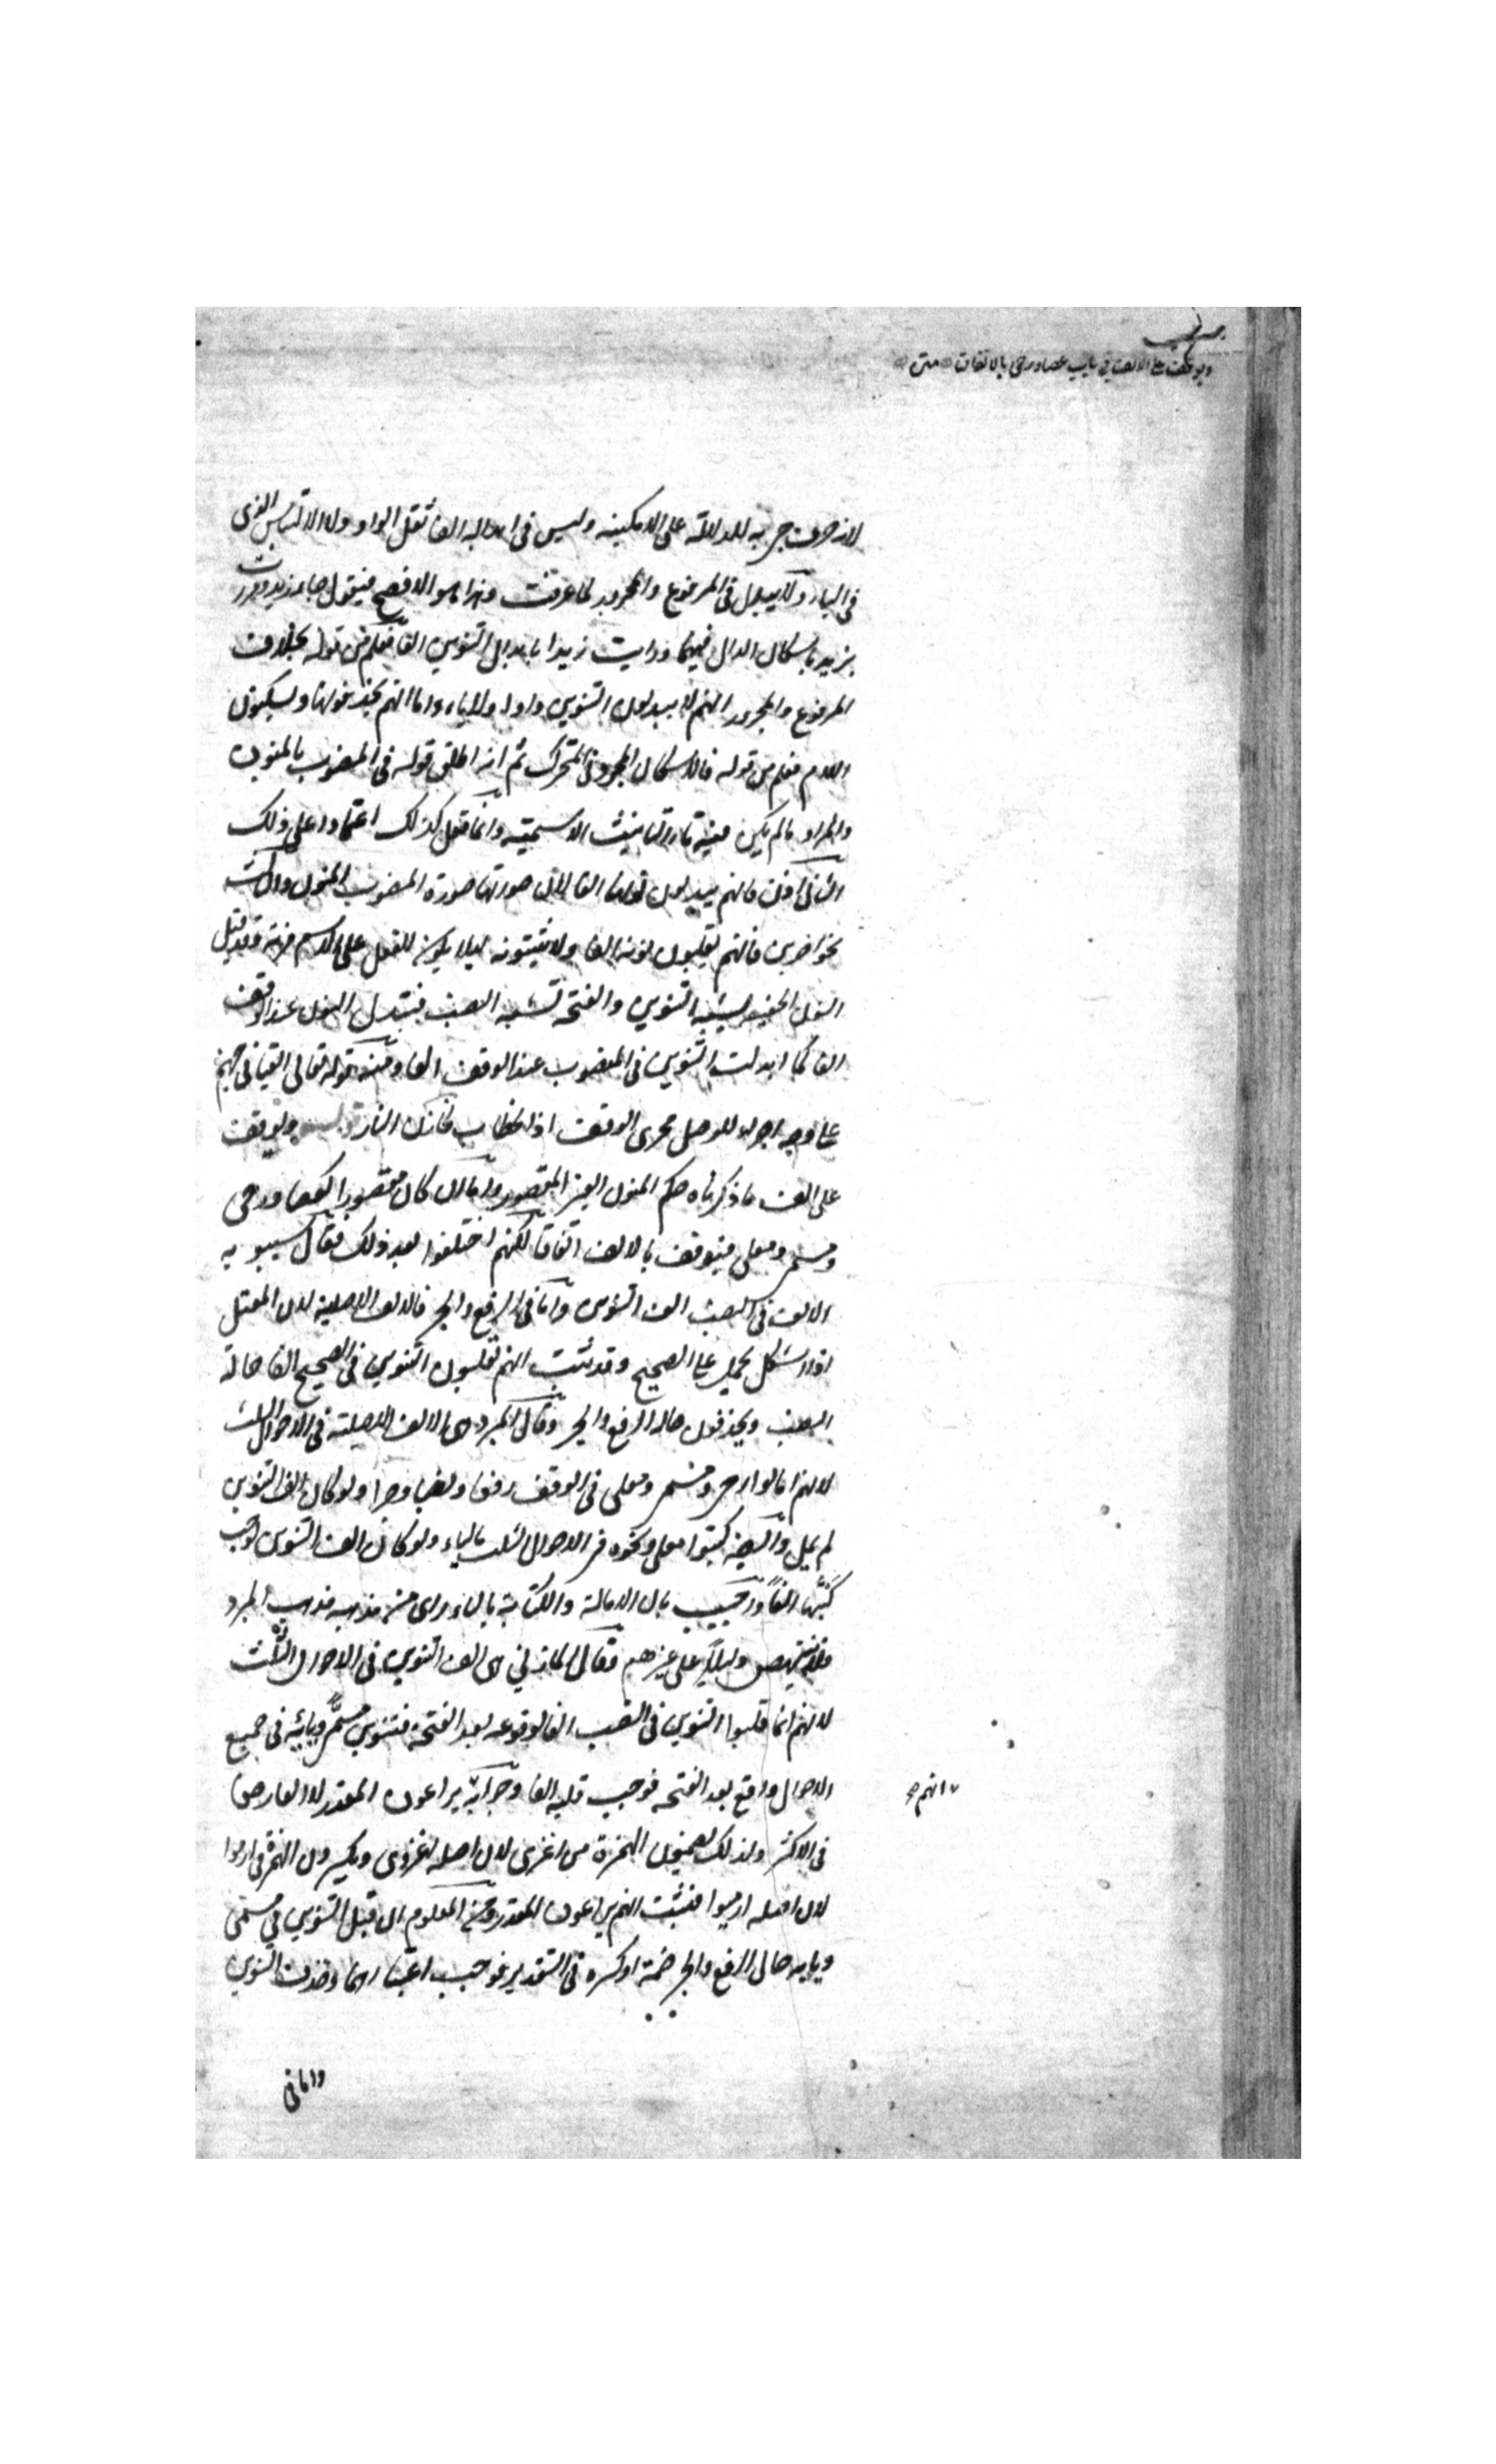 ويوقف على الالف في باب عصا ورحى بالاتفاق متن
لانه حرف جر به للدلالة على الامكنية وليس في ابداله الفا ثقل الواو ولا الالتباس الذى
في الياء ولا يبدل في المرفوع والمجرور لما عرفت وهذا هو الافصح فيقول جاء زيد ومررت
بزيد باسكان الدال فيهما ورايت زيدا بابدال التنوين الفا فعلم من قوله بخلاف
المرفوع والمجرور انهم لا يبدلون التنوين واوا ولا ياء واما انهم يحذفونها ويسكنون
اللام فعلم من قوله فالاسكان المجرد في المتحرك ثم انه اطلق قوله في المنصوب بالمنون
والمراد ما لم يكن فيه تاء التانيث الاسمية وانما فعل كذلك اعتمادا على ذلك
الثاني اذن فانهم يبدلون نونها الفا لان صورتها صورة المنصوب المنون والثالث
نحو اضربن فانهم يقلبون نونه الفا ولا يثبتونه ليلا يكون للفعل على الاسم مزية وقد قيل
النون الخفيفة يشبه التنوين والفتحة تشبه النصب فيبدل النون عند الوقف
الفا كما ابدلت التنوين في المنصوب عند الوقف الفا ومنه قوله تعالى القيا في جهنم
على وجه اجراء للوصل مجرى الوقف اذ الخطاب لخازن النار قوله ويوقف
على الف ما ذكرناه حكم المنون الغير المقصور واما ان كان مقصورا كعصا ورحى
ومسمى ومعلى فيوقف بالالف اتفاقا لكنهم اختلفوا بعد ذلك فقال سيبويه
الالف في النصب الف التنوين واما في الرفع والجر فالالف الاصلية لان المعتل
اذا اشكل يحمل على الصحيح وقد ثبت انهم يقلبون التنوين في الصحيح الفا حالة
النصب ويحذفون حالة الرفع والجر وقال المبرد هى الالف الاصلية في الاحوال الثلث
لانهم امالوا رحى ومسمى ومعلى في الوقف رفعا ونصبا وجرا ولو كان الف التنوين
لم يمل وايضا كتبوا معلى ونحوه في الاحوال الثلث بالياء ولو كان الف التنوين لوجب
كتبها الفا واجيب بان الامالة والكتابة بالياء راى من مذهبه مذهب المبرد
فلا ينتهض دليلا على غيرهم فقال المازني هى الف التنوين في الاحوال الثلث
لانهم انما قلبوا التنوين في النصب الفا لوقوعه بعد الفتحة فتنوين مسمى وبابه في جميع
الاحوال واقع بعد الفتحة فوجب قلبه الفا وجوابه يراعون المقدر لا العارض
انهم صح
في الاكثر ولذلك يضمون الهمزة من اغزى لان اصله اغزوى ويكسرون الهمزة في ارموا
لان اصله ارميوا فثبت انهم يراعون المقدر ومن المعلوم ان قبل التنوين في مسمى
وبابه حالى الرفع والجر ضمة او كسرة في التقدير فوجب اعتبارهما وحذف التنوين
واما في